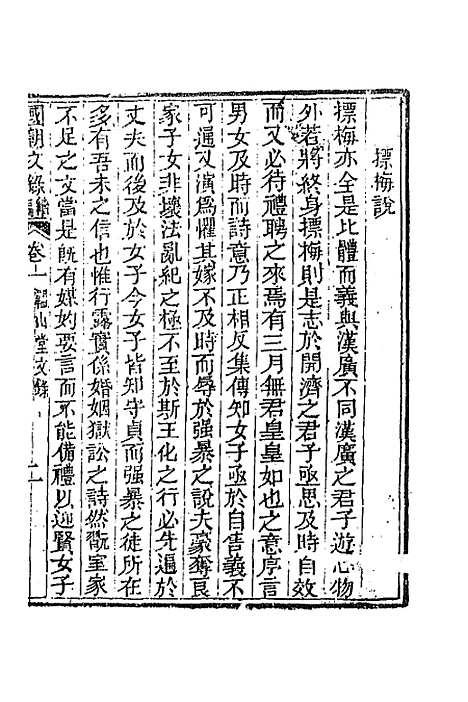 摽梅說
摽梅亦全是比體而義與漢廣不同漢廣之君子遊心物
外若將終身摽梅則是志於開濟之君子亟思及時自效
而又必待禮聘之來焉有三月無君皇皇如也之意序言
男女及時而詩意乃正相反集傳知女子亟於自售義不
可通又演為懼其嫁不及時而辱於强暴之說夫豪奪良
家子女非壞法亂紀之極不至於斯王化之行必先遍於
丈夫而後及於女子今女子皆知守貞而强暴之徒所在
多有吾未之信也惟行露實係婚姻獄訟之詩然翫室家
不足之文當是旣有媒妁要言而不能備禮以迎賢女子
國朝文錄 卷一 堂文錄